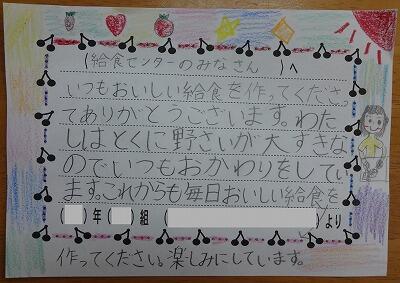 (給食センターのみなさん)へ
いつもおいしい給食を作ってくださっ
てありがとうございます。わた
しはとくに野さいが大すきな
のでいつもおかわりをしてい
ます。これからも毎日おいしい給食を
( )年( )組( )より
作ってください。楽しみにしています。